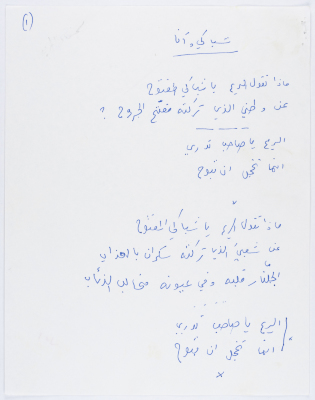 (١)
شباكي وأنا
ماذا تقول الريح يا شباكي المفتوح
عن وطني الذي تركته مفتح الجروح ؟
الريح يا صاحب تدري
انها تخجل ان تبوح
ماذا تقول الريح يا شباكي المفتوح
عن شعبي الذي تركته سكران بالهذاب
قلبه وفي عيونه مخالب الذئاب
الريح يا صاحب تدري
انها تخجل ان تبوح